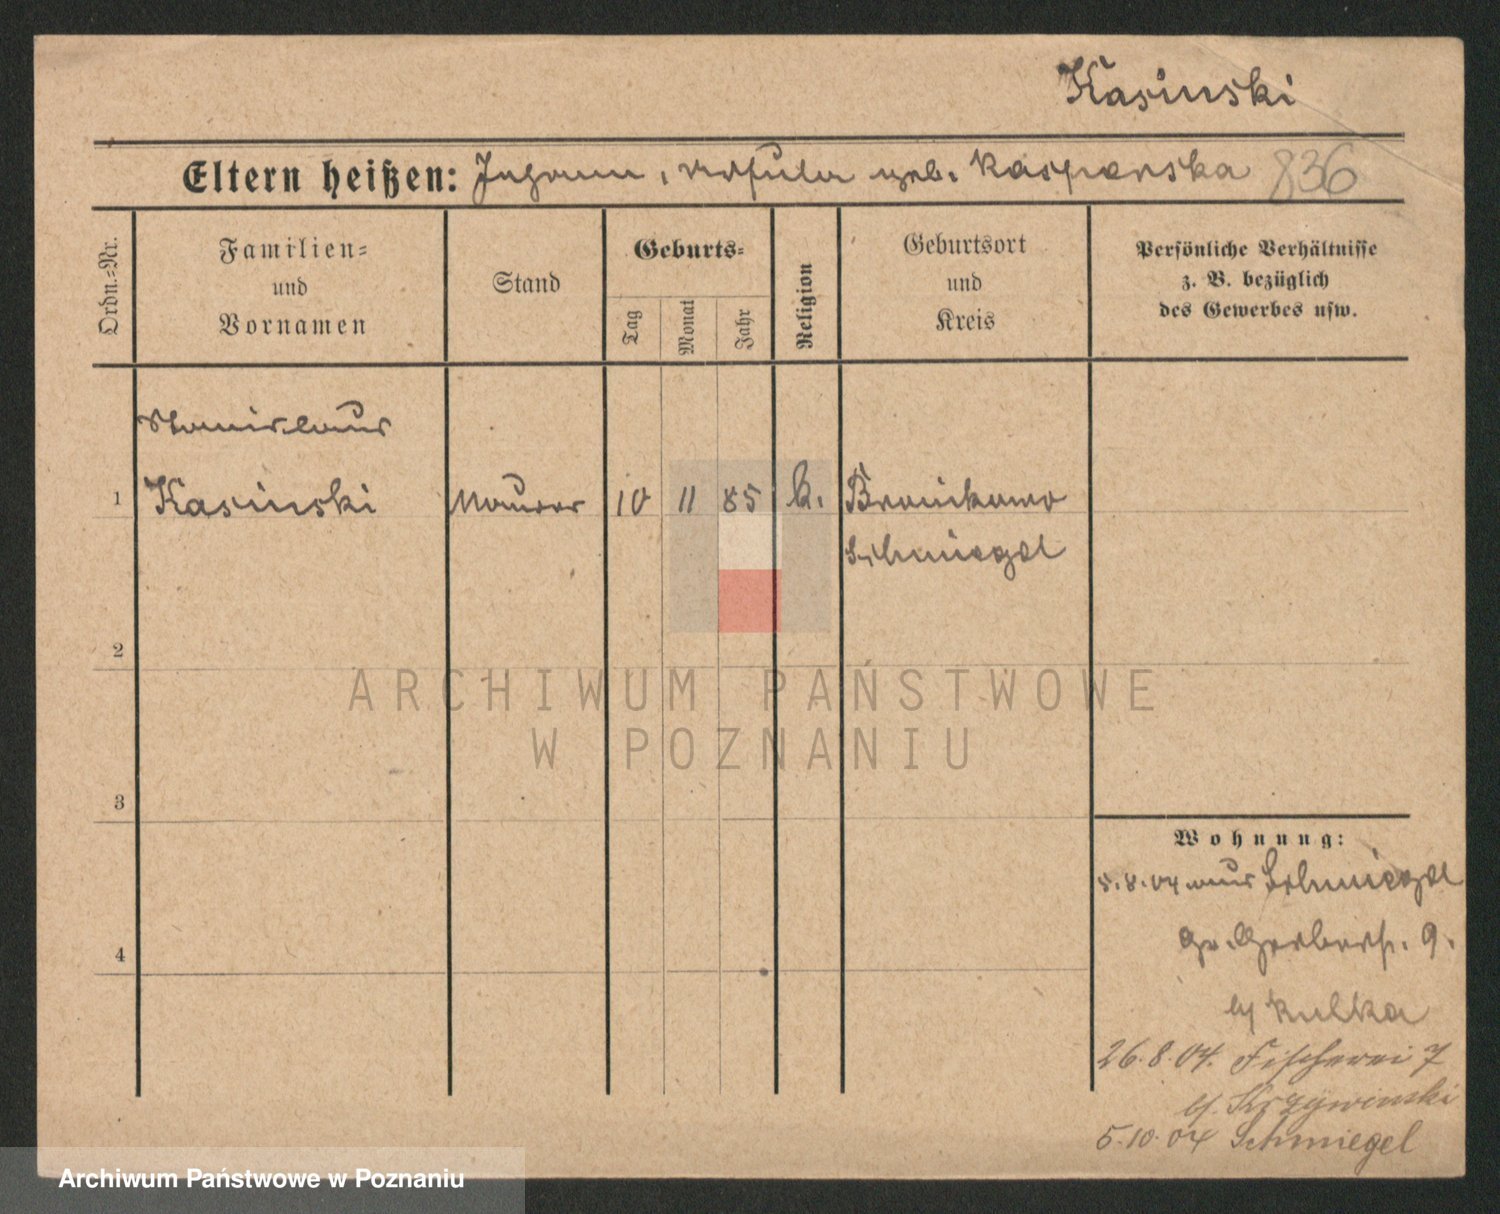 Kasinski
Eltern heißen: Johann, Ursula geb. Kasperska 836
Ordn.-Nr.
Familien-
und
Vornamen
Stand
Geburts-
Tag
Monat
Jahr
Religion
Geburtsort
und
Kreis
Persönliche Verhältnisse
z. B. bezüglich
des Gewerbes usw.
Stanislaus
1 Kasinski Maurer 10 11 85 k. Bronikowo
Schmiegel
2
ARCHIWUM PAŃSTWOWE
W POZNANIU
3
4
Wohnung:
5.8.04 aus Schmiegel
Gr. Gerberst. 9.
b/ Kulka
26.8.04. Fischerei 7
b/. Krzywinski
5.10.04 Schmiegel
Archiwum Państwowe w Poznaniu